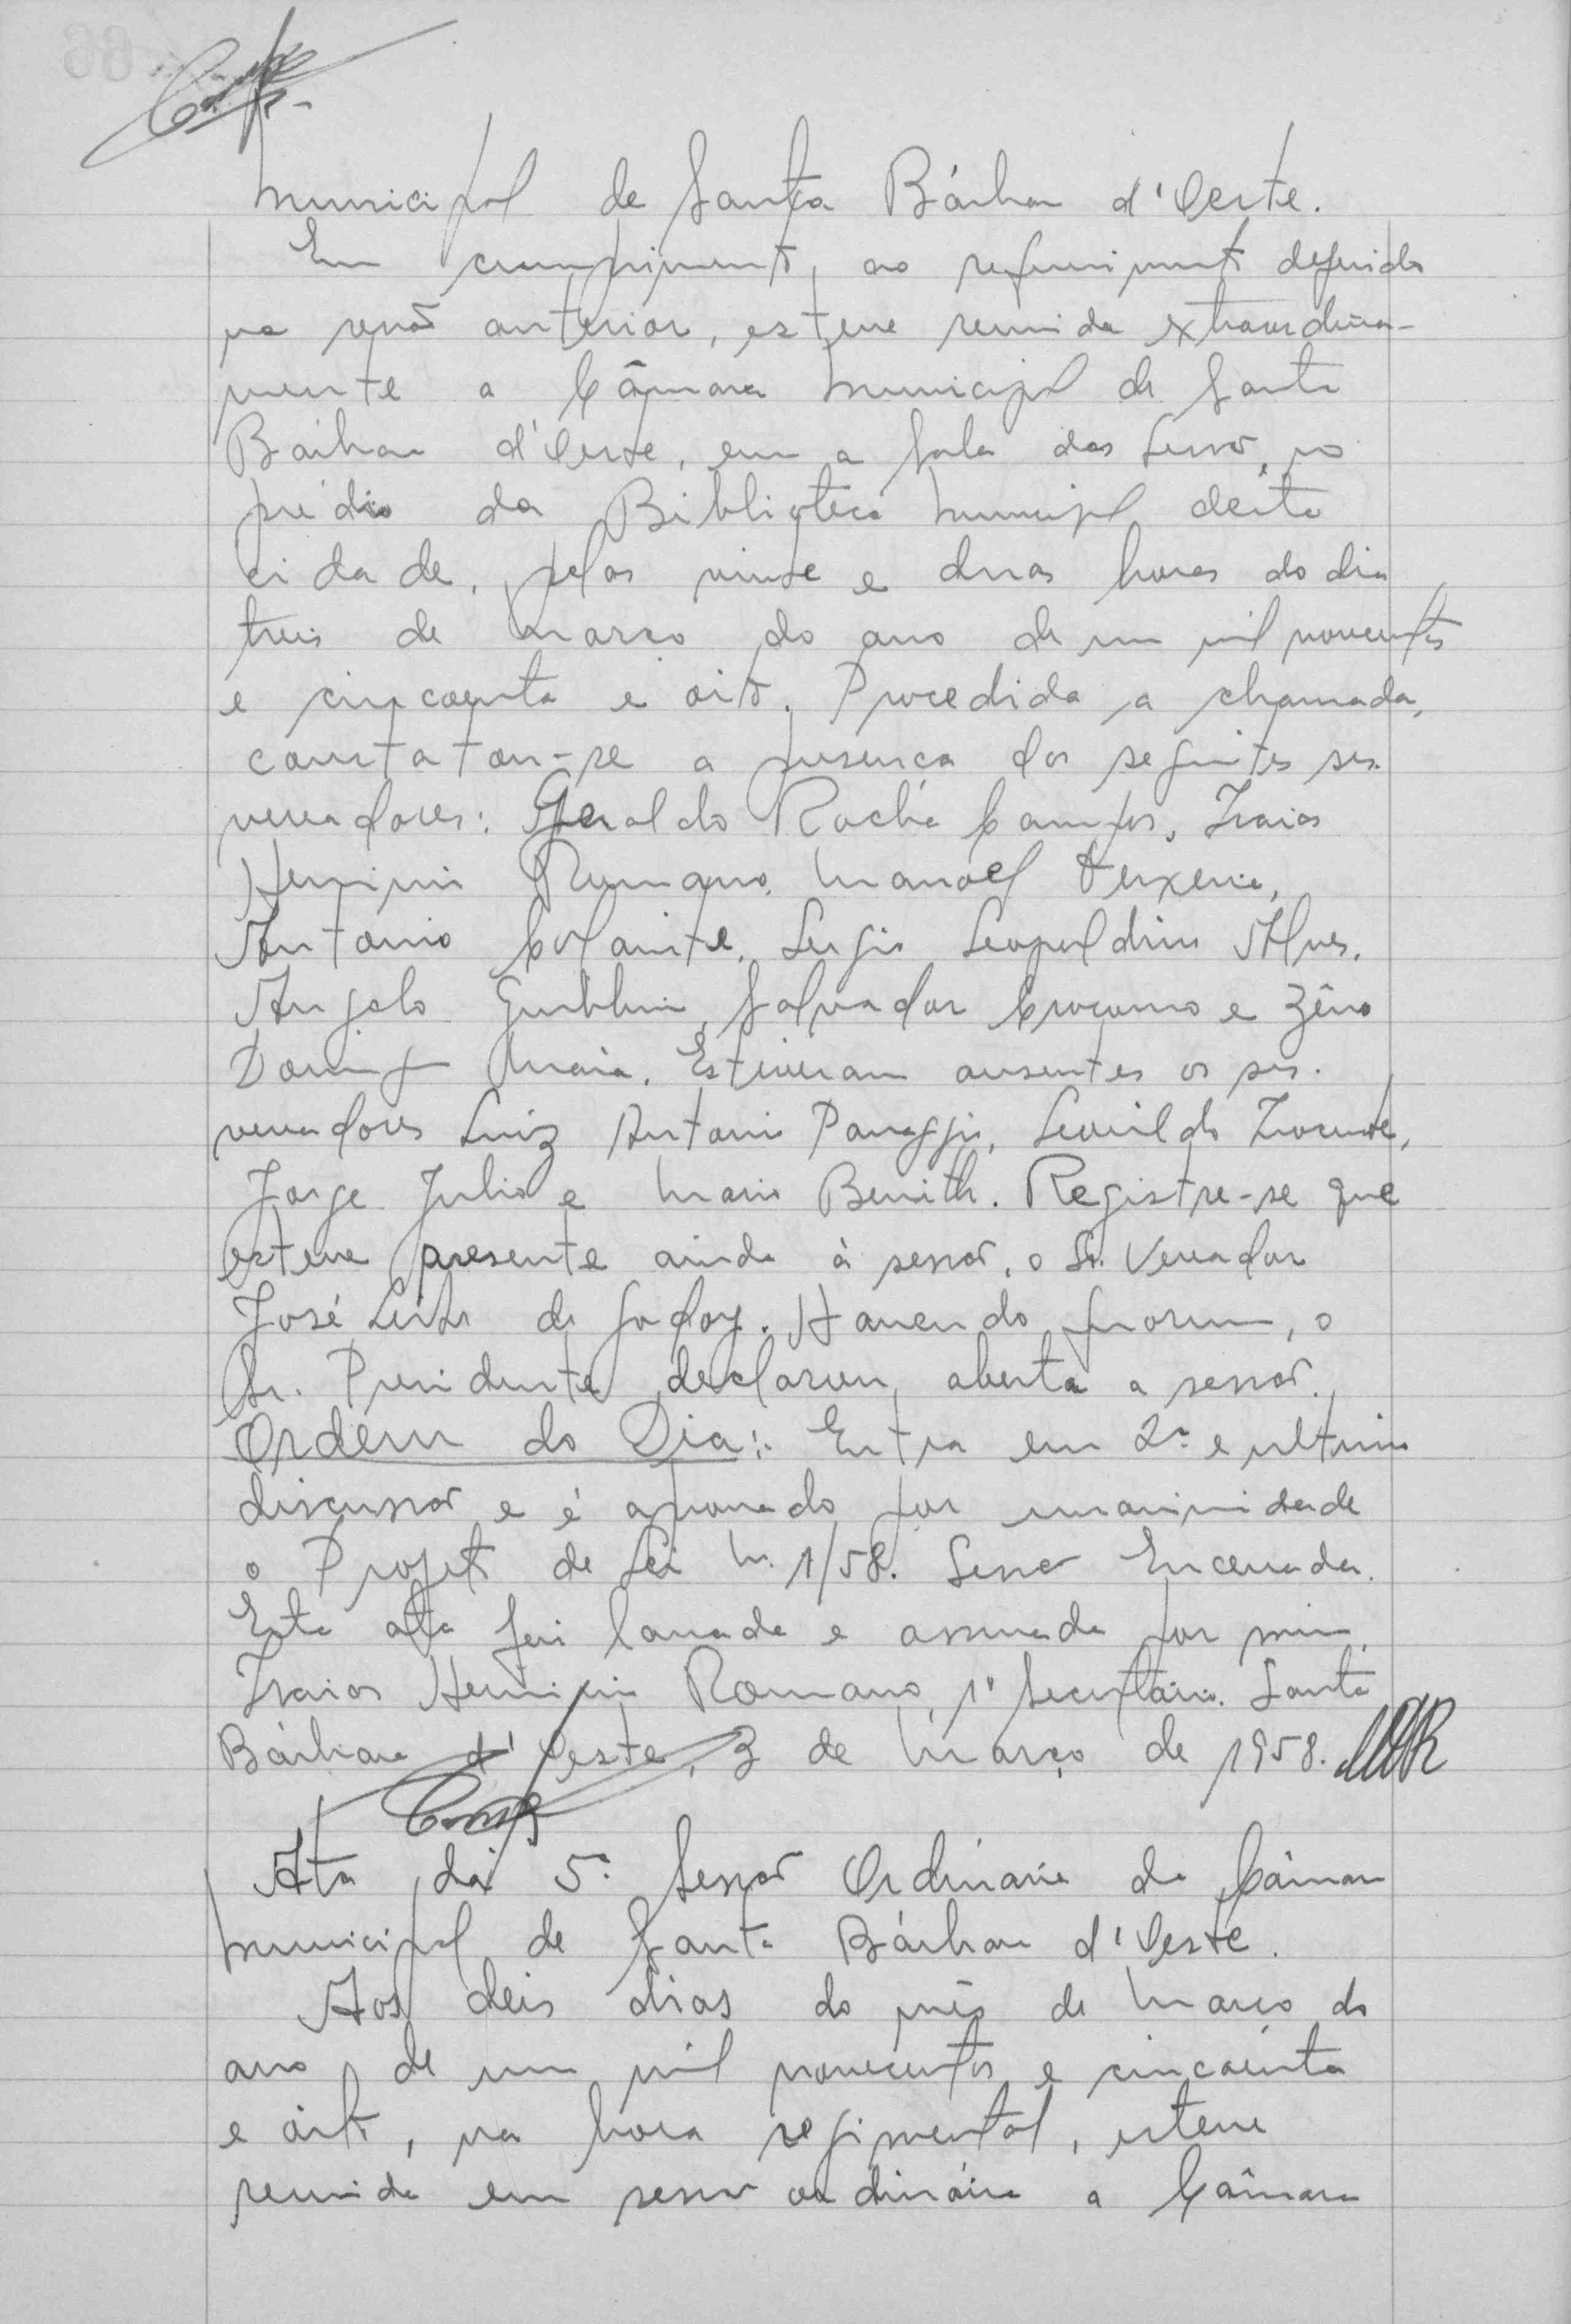 Municipal de Santa Bárbara d'Oeste.
Em cumprimento, ao requerimento deferido
na sessão anterior, esteve reunida extraordinaria-
mente a Câmara Municipal de Santa
Bárbara d'Oeste, em a Sala das Sessões, no
prédio da Biblioteca Municipal desta
cidade, pelas vinte e duas horas do dia
treis de março do ano de um mil novecentos
e cincoenta e oito. Procedida a chamada,
constatou-se a presença dos seguintes srs.
vereadores: Geraldo Rocha Campos, Izaias
Herminio Romano, Manoel Teixeira,
Antonio Sergio Leopoldino Alves,
Angelo Salvador e Zêno
Domingos Maia. Estiveram ausentes os srs.
vereadores Luiz Antonio Panaggio, Leonildo
Jorge Julio e Mario Benith. Registre-se que
esteve presente ainda à sessão, o Sr. Vereador
José Leite de Godoy. Havendo quorum, o
Sr. Presidente declarou aberta a sessão.
Ordem do Dia: Entra em 2ª e ultima
discussão e é aprovado por unanimidade
o Projeto de Lei n. 1/58. Sessão Encerrada.
Esta ata foi lavrada e assinada por mim,
Izaias Herminio Romano, 1º Secretário. Santa
Bárbara d'Oeste, 3 de Março de 1958.
Ata da 5ª Sessão Ordinaria da Câmara
Municipal de Santa Bárbara d'Oeste.
Aos deis dias do mês de Março do
ano de um mil novecentos e cincoenta
e oito, na hora regimental, esteve
reunida em sessão ordinária a Câmara